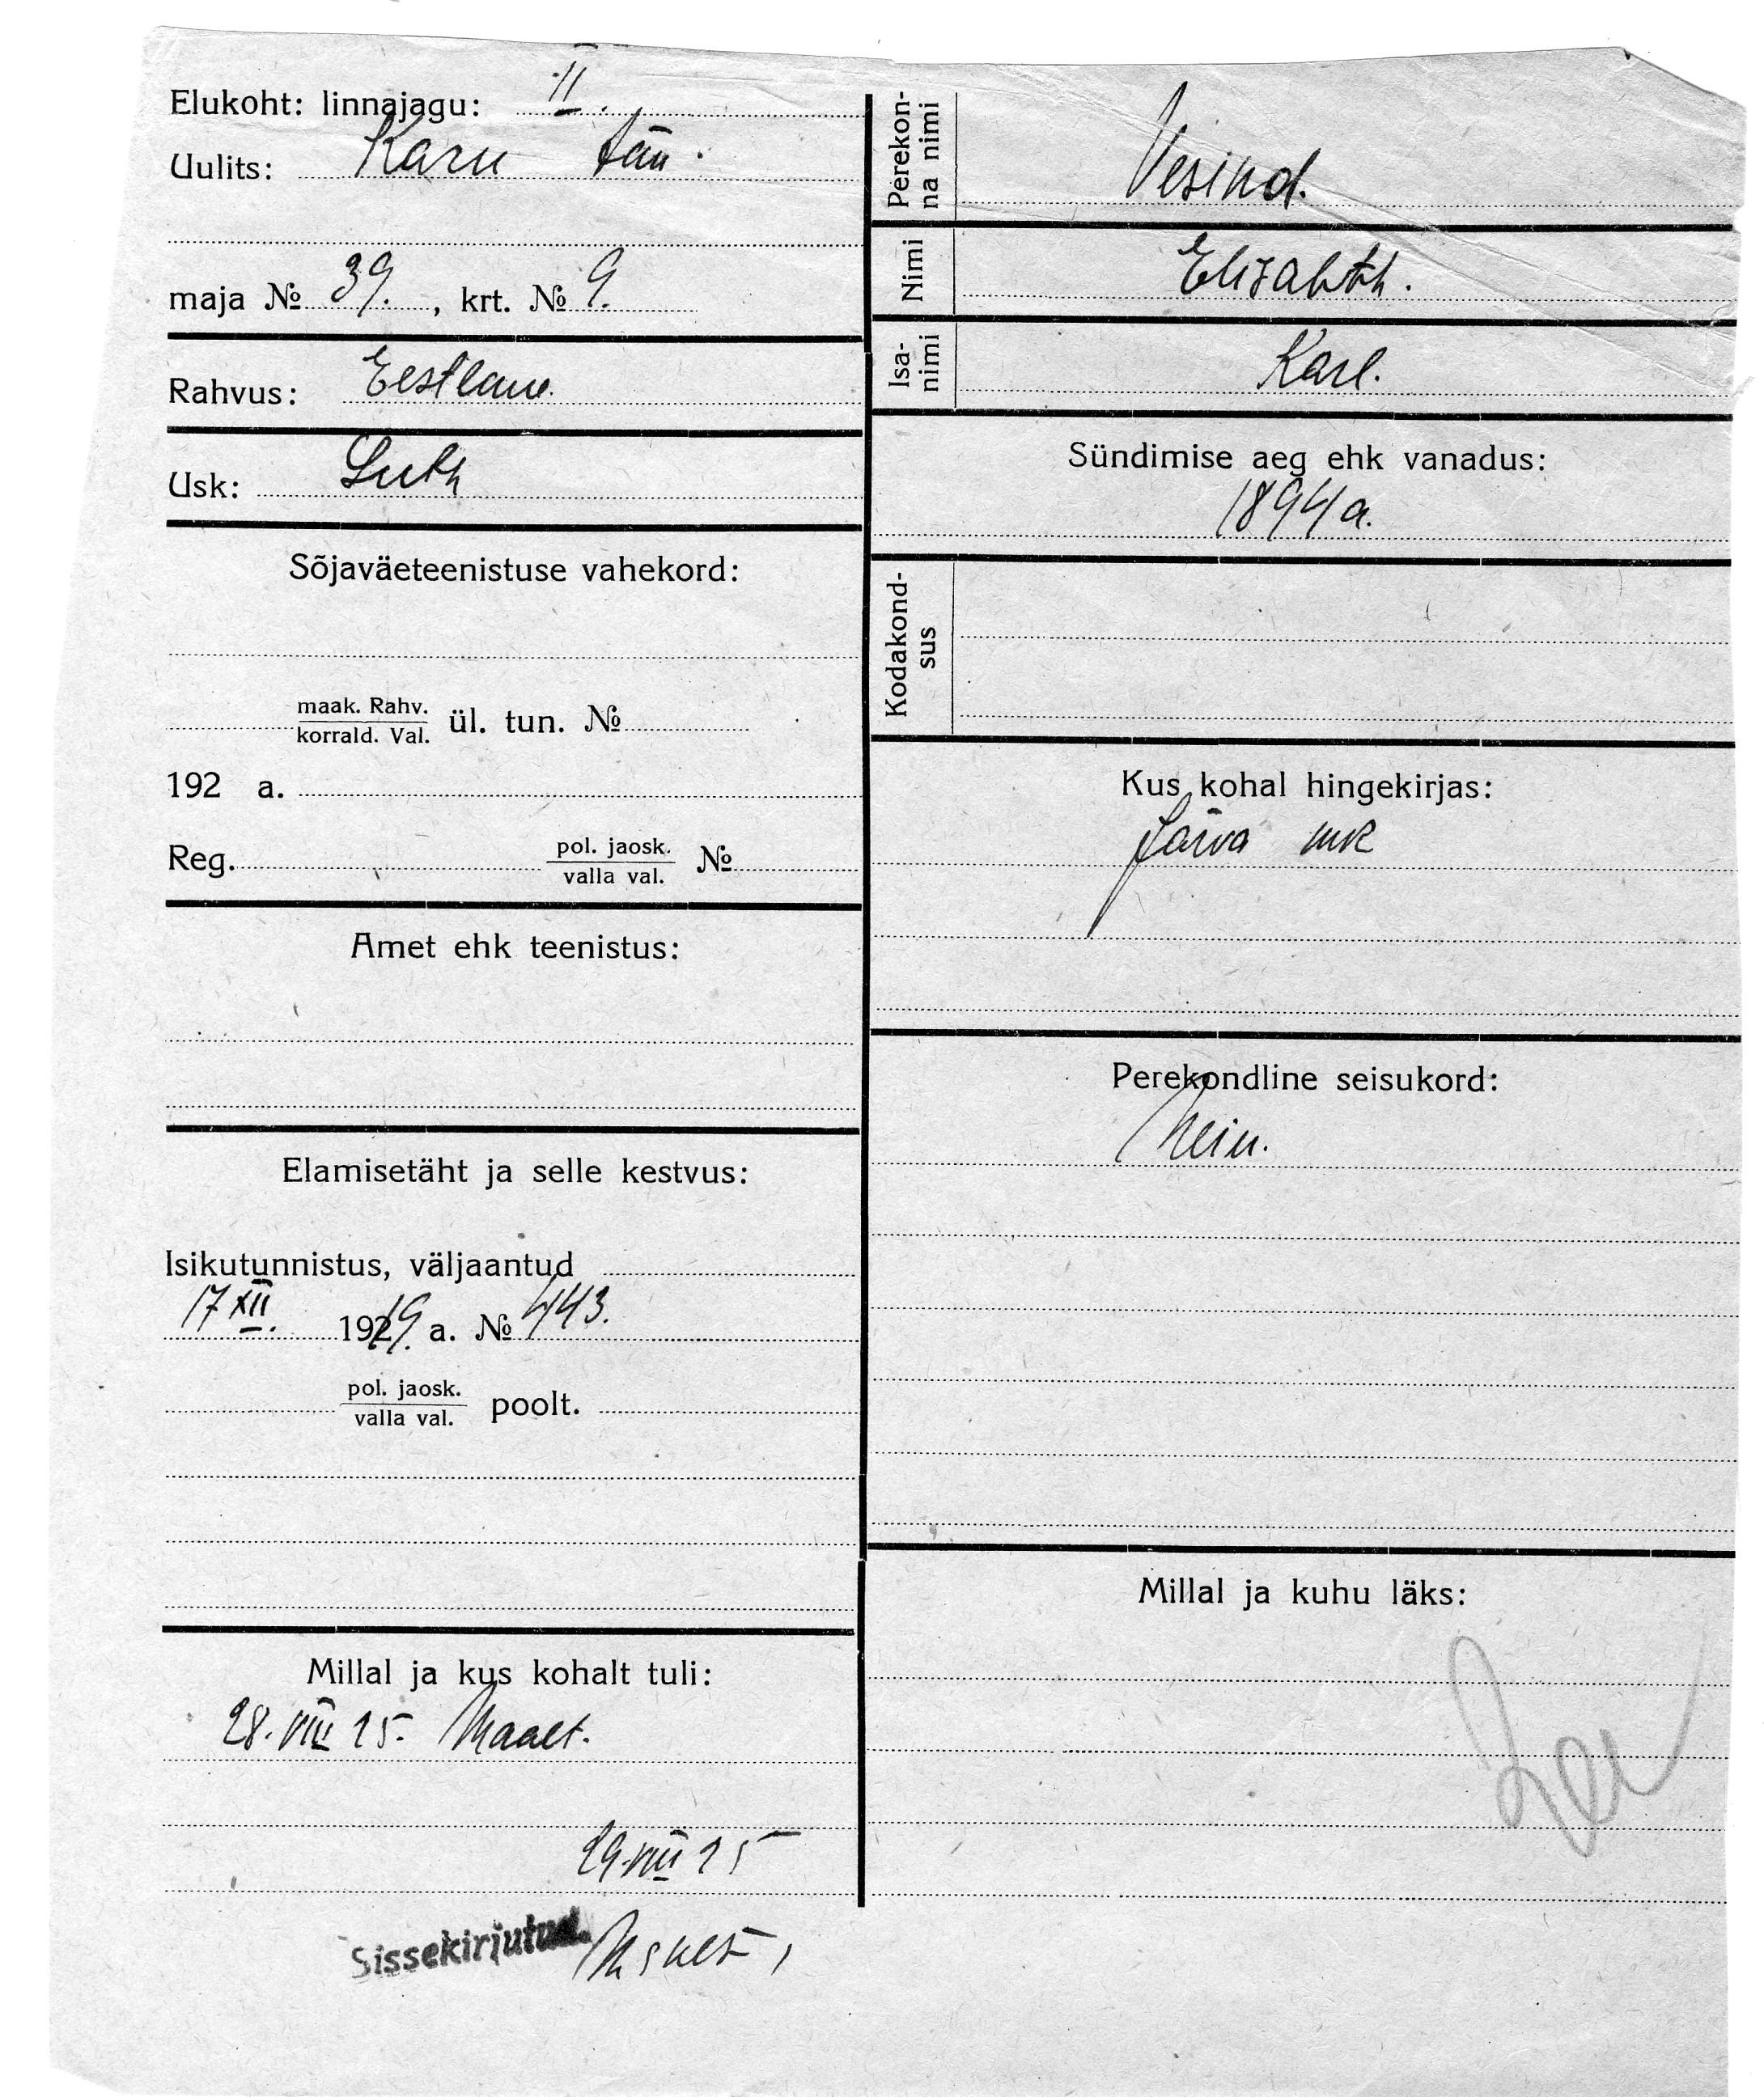 Elukoht: linnajagu: II.
Uulits: Karu tän.
maja № 39., krt. № 9.
Rahvus: Eestlane.
Usk: Luth
Sõjaväeteenistuse vahekord:
maak. Rahv.
korrald. Val. ül. tun. №
192 a.
Reg. pol. jaosk.
valla val. №
Amet ehk teenistus:
Elamisetäht ja selle kestvus:
Isikutunnistus, väljaantud
17 XII. 1919. a. № 443.
pol. jaosk.
valla val. poolt.
Millal ja kus kohalt tuli:
28. VIII 25. Maalt.
29. VIII 25
Sissekirjutud.
Perekon-
na nimi
Vesind.
Nimi
Elisabeth.
Isa-
nimi
Karl.
Sündimise aeg ehk vanadus:
1894 a.
Kodakond-
sus
Kus kohal hingekirjas:
Järva mk
Perekondline seisukord:
Neiu.
Millal ja kuhu läks: